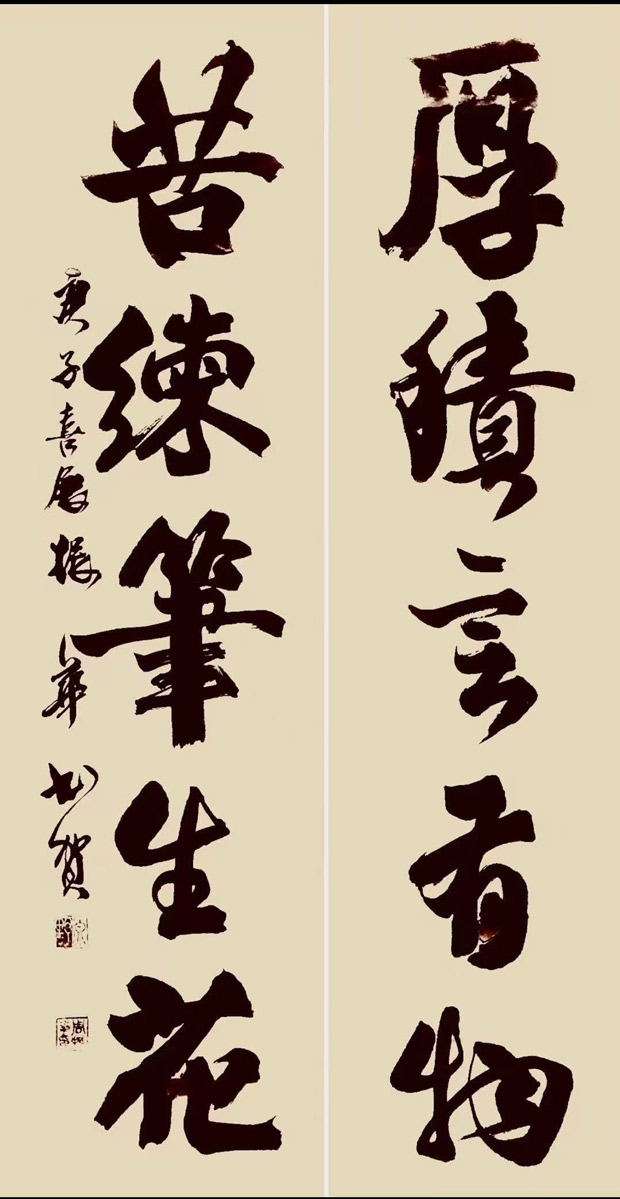 厚積言有物
苦練筆生花
庚子喜展振華書賀